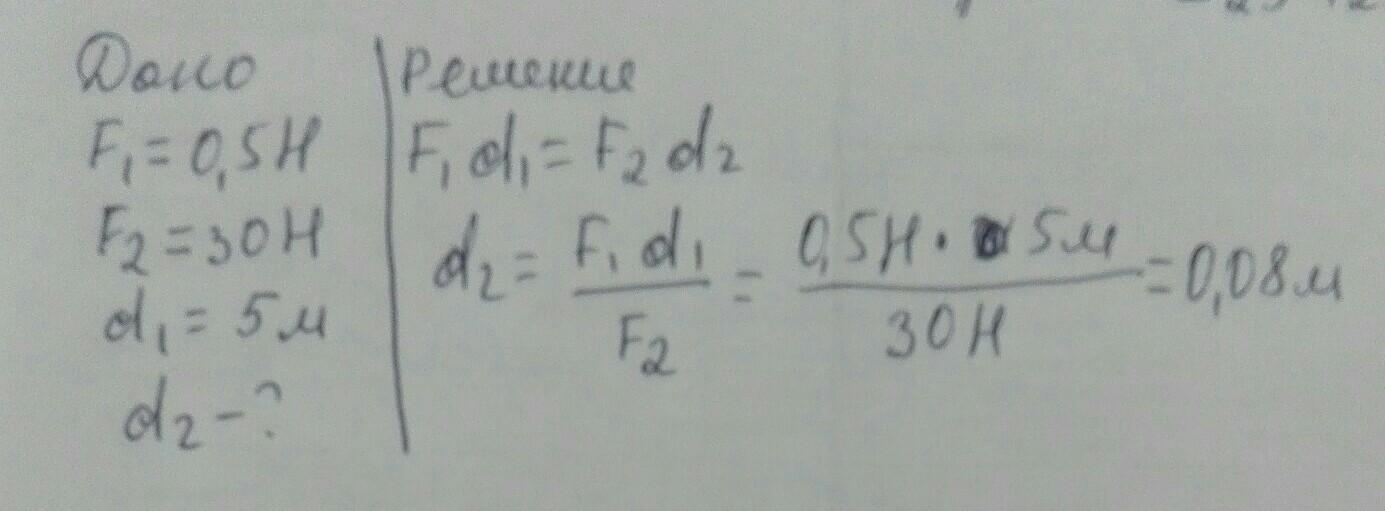 Дано
F₁ = 0,5 Н
F₂ = 30 Н
d₁ = 5 м
d₂ – ?
Решение
F₁ d₁ = F₂ d₂
d₂ = F₁ d₁ / F₂ = 0,5 Н · 5 м / 30 Н = 0,08 м